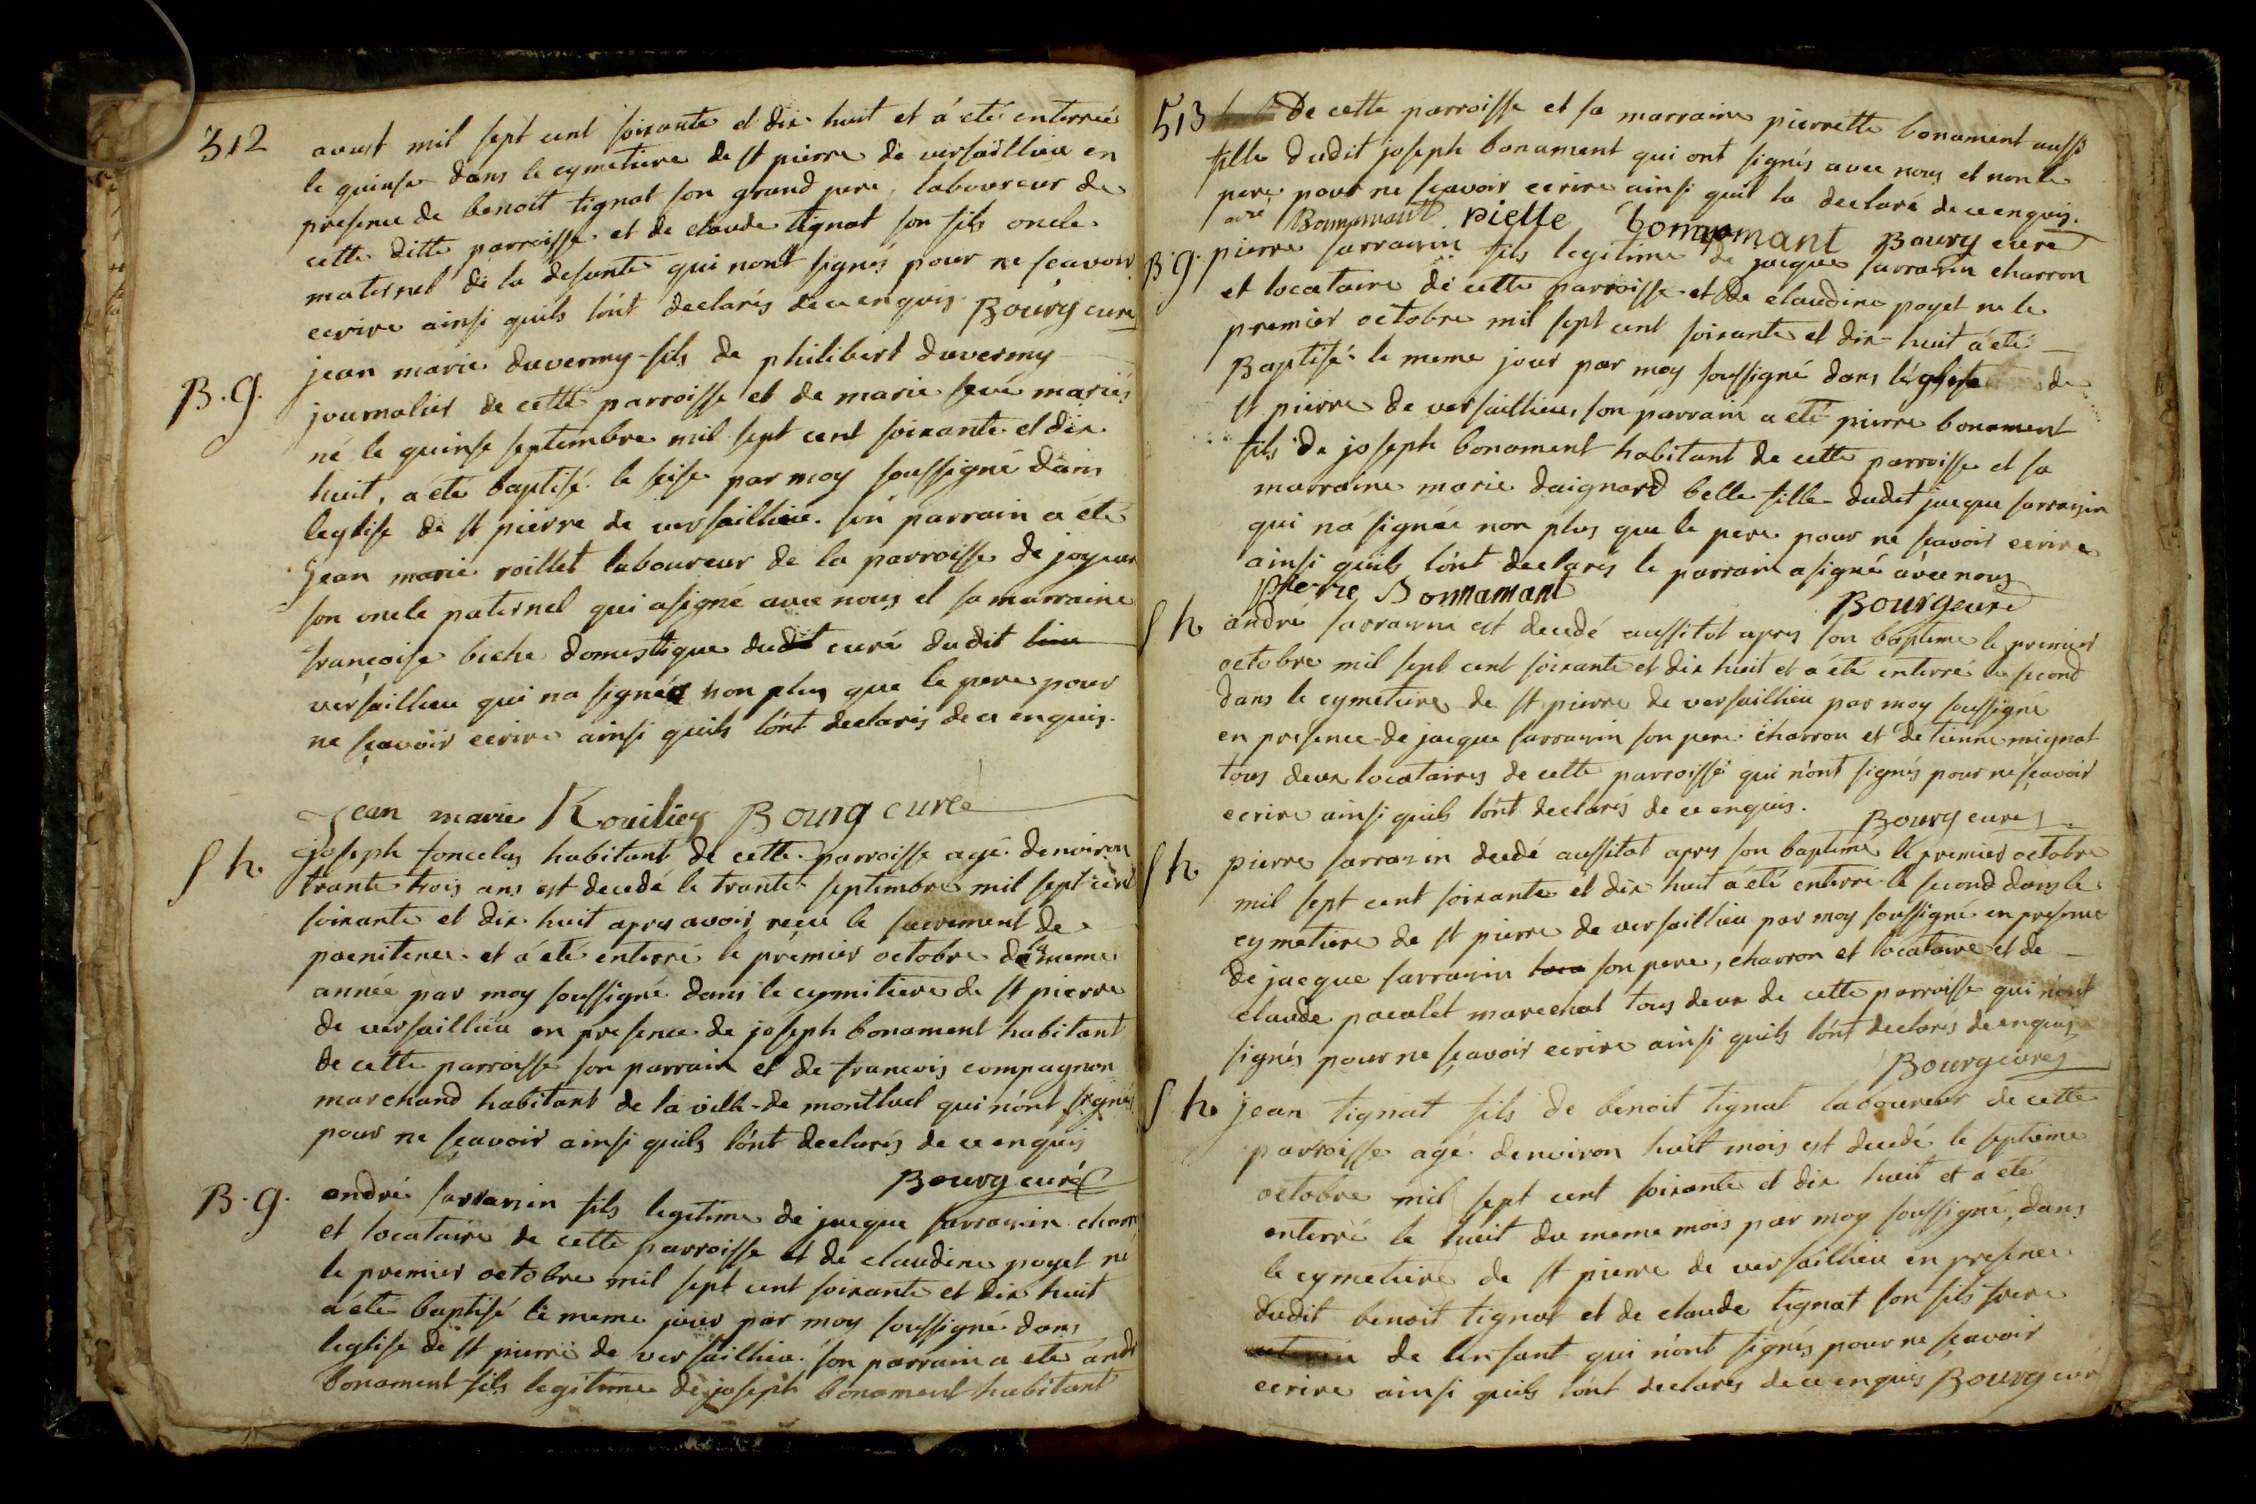 312 aoust mil sept cent soixante et dix huit et á eté enterrée
le quinse dans le cymetiere de st pierre de versaillieu en
presence de benoit tignat son grand pere, laboureur de
cette ditte parroisse et de claude tignat son fils oncle
maternel de la defunte qui nont signés pour ne scavoir
ecrire ainsi quils lónt declarés de ce enquis. Bourg curé
B. g. jean marie duverny fils de philibert duverny
journalier de cette parroisse et de marie mariés
né le quinse septembre mil sept cent soixante et dix
huit, a été baptisé le seise par moy soussigné dans
leglise de st pierre de versaillieu. son parrain a été
jean marie roillet laboureur de la parroisse de joyeux
son oncle paternel qui a signé avec nous et sa marraine
francoise biche domestique dudit curé dudit lieu
versaillieu qui na signée non plus que le pere pour
ne sçavoir ecrire ainsi quils lónt declarés de ce enquis.
jean marie Rouiliey Bourg curé
S h. joseph foncelas habitant de cette parroisse agé denviron
trante trois ans est decedé le trante septembre mil sept cent
soixante et dix huit apres avoir recu le sacrement de
paenitence et á eté enterré le prémier octobre de la meme
année par moy soussigné dans le cymitiere de st pierre
de versaillieu en presence de joseph bonament habitant
de cette parroisse son parrain et de francois compagnon
marchand habitant de la ville de montluel qui nónt signés
pour ne sçavoir ainsi quils lónt declarés de ce enquis
Bourg curé
B. g. andré sarrasin fils legitime de jacque sarrasin charon
et locataire de cette parroisse et de claudine poyet né
le premier octobre mil sept cent soixante et dix huit
a été baptisé le meme jour par moy soussigné dans
leglise de st pierre de versaillieu. son parrain a eté andr
bonament fils legitime de joseph bonament habitant
513 De cette parroisse et sa marraine pierrette bonament aussi
fille dudit joseph bonament qui ont signés avec nous et non le
pere pour ne sçavoir ecrire ainsi quil la declaré de ce enquis.
Bonnamant pielle bonnamant Bourg curé
B. g. pierre sarrasin fils legitime de jacque sarrasin charron
et locataire de cette parroisse et de claudine poyet né le
premier octobre mil sept cent soixante et dix-huit á été
Baptisé le meme jour par moy soussigné dans léglise de
st pierre de versaillieu, son parrain a eté pierre bonament
fils de joseph bonament habitant de cette parroisse et sa
marraine marie daignard belle fille dudit jacque sarrasin
qui ná signée non plus que le pere pour ne scavoir ecrire
ainsi quils lónt declarés le parrain a signé avec nous
pierre Bonnamant Bourg curé
S h. andré sarrasin est decedé aussitot apres son bapteme le premier
octobre mil sept cent soixante et dix huit et a été enterré le second
dans le cymetiere de st pierre de versaillieu par moy soussigné
en présence de jacque sarrasin son pere charron et détienne mignat
tous deux locataires de cette parroisse qui nónt signés pour ne sçavoir
ecrire ainsi quils lónt declarés de ce enquis. Bourg curé
S h. pierre sarrasin decedé aussitot apres son baptéme le premier octobre
mil sept cent soixante et dix huit á eté enterré le second dans le
cymetiere de st pierre de versaillieu par moy soussigné en presence
de jacque sarrasin loca son pere, charron et locataire et de
claude pacalet marechal tous deux de cette parroisse qui nont
signés pour ne sçavoir ecrire ainsi quils lónt declarés de enquis
Bourg curé
S h. jean tignat fils de benoit tignat laboureur de cette
parroisse agé denviron huit mois est decedé le septieme
octobre mil sept cent soixante et dix huit et a eté
enterré le huit du meme mois par moy soussigné, dans
le cymetiere de st pierre de versaillieu en presence
dudit benoit tignat et de claude tignat son fils frere
de lenfant qui nónt signés pour ne sçavoir
ecrire ainsi quils lónt declarés de ce enquis Bourg curé